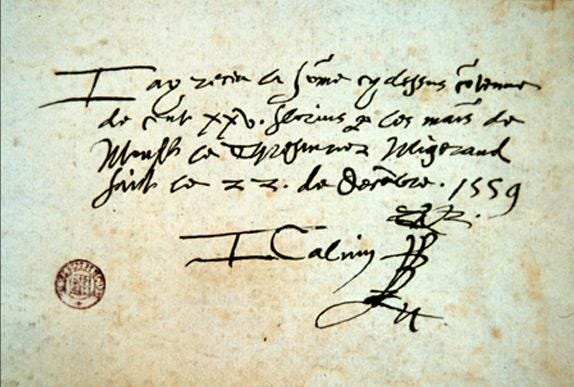 I ay receu la sõme cy dessus cõtenue
de cent xxv. florins p les mãis de
Monsr le Thresorier Migerand
faict ce 22. de Decẽbre. 1559
I Calvin